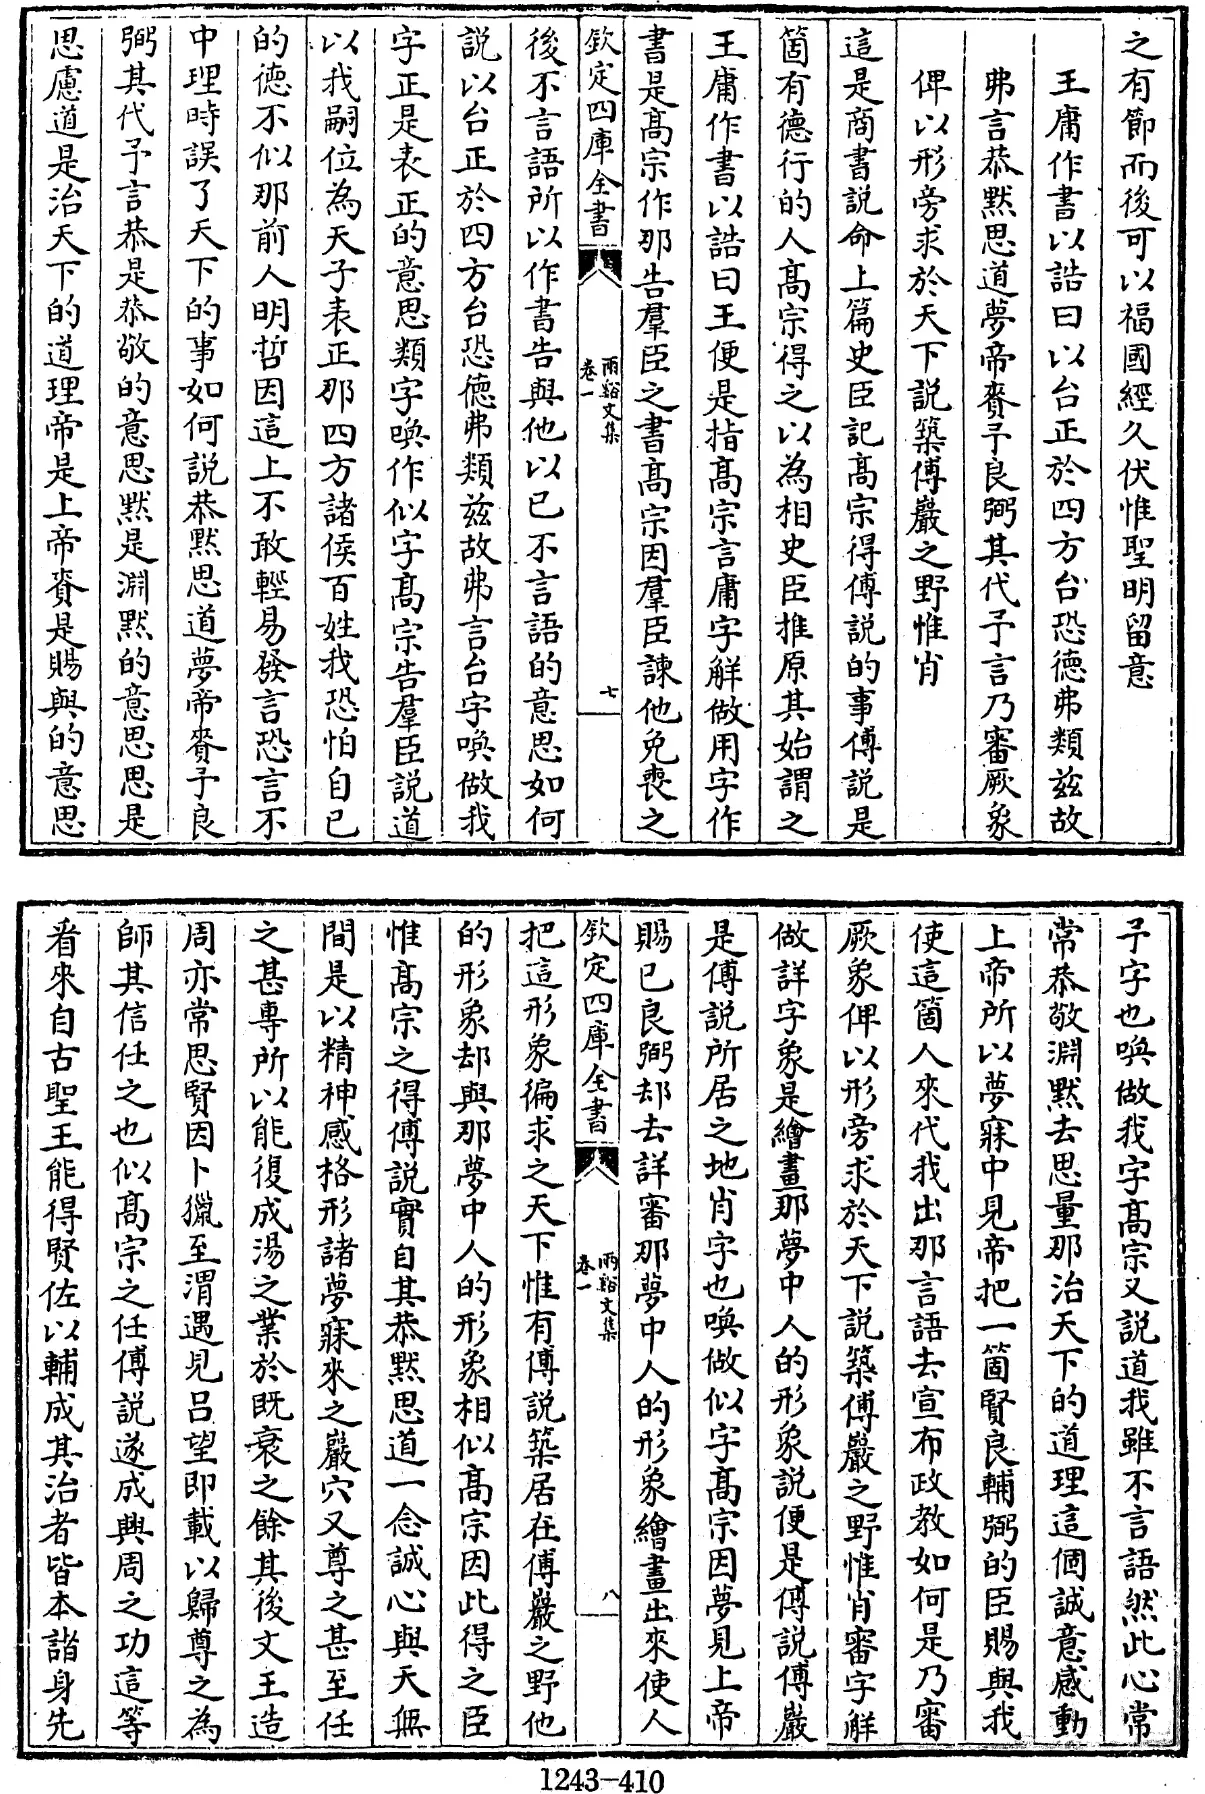 之有節而後可以福國經久伏惟聖明留意
王庸作書以誥曰以台正於四方台恐德弗類兹故
弗言恭黙思道夢帝賚予良弼其代予言乃審厥象
俾以形旁求於天下説築傅巖之野惟肖
這是商書説命上篇史臣記髙宗得傅説的事傅説是
箇有德行的人髙宗得之以為相史臣推原其始謂之
王庸作書以誥曰王便是指髙宗言庸字解做用字作
書是髙宗作那告羣臣之書髙宗因羣臣諫他免喪之
欽定四庫全書
兩谿文集
卷一
七
後不言語所以作書告與他以已不言語的意思如何
説以台正於四方台恐德弗類兹故弗言台字喚做我
字正是表正的意思類字喚作似字髙宗告羣臣説道
以我嗣位為天子表正那四方諸侯百姓我恐怕自已
的德不似那前人明哲因這上不敢輕易發言恐言不
中理時誤了天下的事如何説恭黙思道夢帝賚予良
弼其代予言恭是恭敬的意思黙是淵黙的意思思是
思慮道是治天下的道理帝是上帝賚是賜與的意思
予字也喚做我字髙宗又説道我雖不言語然此心常
常恭敬淵黙去思量那治天下的道理這個誠意感動
上帝所以夢寐中見帝把一箇賢良輔弼的臣賜與我
使這箇人來代我出那言語去宣布政教如何是乃審
厥象俾以形旁求於天下説築傅巖之野惟肖審字解
做詳字象是繪畫那夢中人的形象説便是傅説傅巖
是傅説所居之地肖字也喚做似字髙宗因夢見上帝
賜已良弼却去詳審那夢中人的形象繪畫出來使人
欽定四庫全書
兩谿文集
卷一
八
把這形象徧求之天下惟有傅説築居在傅巖之野他
的形象却與那夢中人的形象相似髙宗因此得之臣
惟髙宗之得傅説實自其恭黙思道一念誠心與天無
間是以精神感格形諸夢寐來之巖穴又尊之甚至任
之甚專所以能復成湯之業於既衰之餘其後文王造
周亦常思賢因卜獵至渭遇見吕望即載以歸尊之為
師其信任之也似髙宗之任傅説遂成興周之功這等
看來自古聖王能得賢佐以輔成其治者皆本諸身先
1243-410